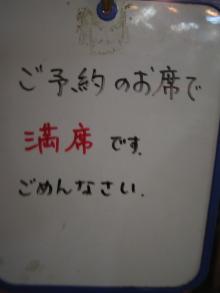 ご予約のお席で
満席です。
ごめんなさい.